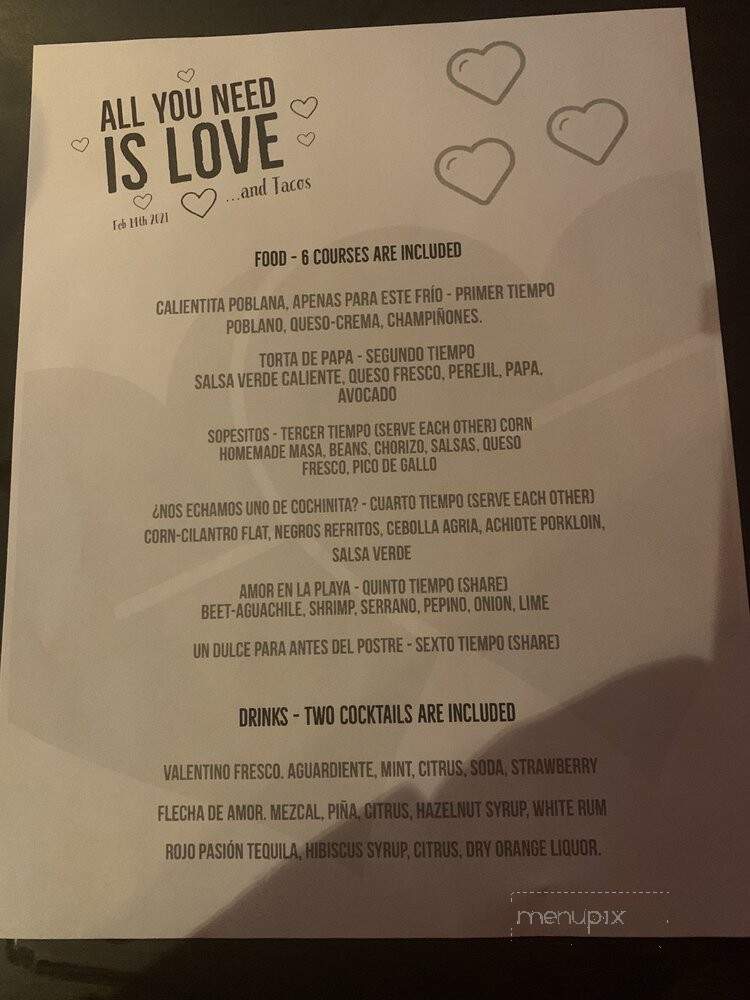 ALL YOU NEED
IS LOVE
...and Tacos
Feb 14th 2021
FOOD - 6 COURSES ARE INCLUDED
CALIENTITA POBLANA, APENAS PARA ESTE FRÍO - PRIMER TIEMPO
POBLANO, QUESO-CREMA, CHAMPIÑONES.
TORTA DE PAPA - SEGUNDO TIEMPO
SALSA VERDE CALIENTE, QUESO FRESCO, PEREJIL, PAPA,
AVOCADO
SOPESITOS - TERCER TIEMPO (SERVE EACH OTHER) CORN
HOMEMADE MASA, BEANS, CHORIZO, SALSAS, QUESO
FRESCO, PICO DE GALLO
¿NOS ECHAMOS UNO DE COCHINITA? - CUARTO TIEMPO (SERVE EACH OTHER)
CORN-CILANTRO FLAT, NEGROS REFRITOS, CEBOLLA AGRIA, ACHIOTE PORKLOIN,
SALSA VERDE
AMOR EN LA PLAYA - QUINTO TIEMPO (SHARE)
BEET-AGUACHILE, SHRIMP, SERRANO, PEPINO, ONION, LIME
UN DULCE PARA ANTES DEL POSTRE - SEXTO TIEMPO (SHARE)
DRINKS - TWO COCKTAILS ARE INCLUDED
VALENTINO FRESCO. AGUARDIENTE, MINT, CITRUS, SODA, STRAWBERRY
FLECHA DE AMOR. MEZCAL, PIÑA, CITRUS, HAZELNUT SYRUP, WHITE RUM
ROJO PASIÓN TEQUILA, HIBISCUS SYRUP, CITRUS, DRY ORANGE LIQUOR.
menupix